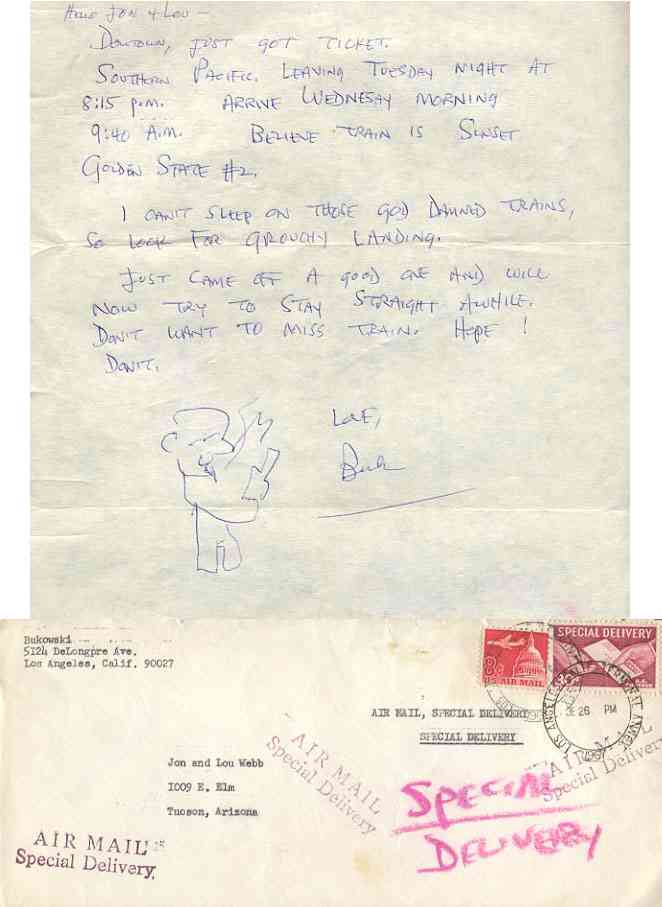 Hello JON & LOU —
DOWTOWN, JUST GOT TICKET.
SOUTHERN PACIFIC. LEAVING TUESDAY NIGHT AT
8:15 p.m. ARRIVE WEDNESAY MORNING
9:40 A.M. BELIEVE TRAIN IS SUNSET
GOLDEN STATE #2.
I CAN'T SLEEP ON THOSE GOD DAMNED TRAINS,
SO LOOK FOR GROUCHY LANDING.
JUST CAME OFF A GOOD ONE AND WILL
NOW TRY TO STAY STRAIGHT AWHILE.
DON'T WANT TO MISS TRAIN. HOPE !
DON'T.
LOVE,
Buk
Bukowski
5124 DeLongpre Ave.
Los Angeles, Calif. 90027
8c
US AIR MAIL
SPECIAL DELIVERY
LOS ANGELES TERMINAL ANNEX
26 PM
AIR MAIL, SPECIAL DELIVERY
SPECIAL DELIVERY
Jon and Lou Webb
1009 E. Elm
Tucson, Arizona
AIR MAIL
Special Delivery
AIR MAIL
Special Delivery
SPECIAL
DELIVERY
AIR MAIL
Special Delivery